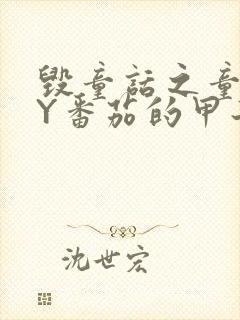 毁童话之童
Y番茄的甲
沈世宏